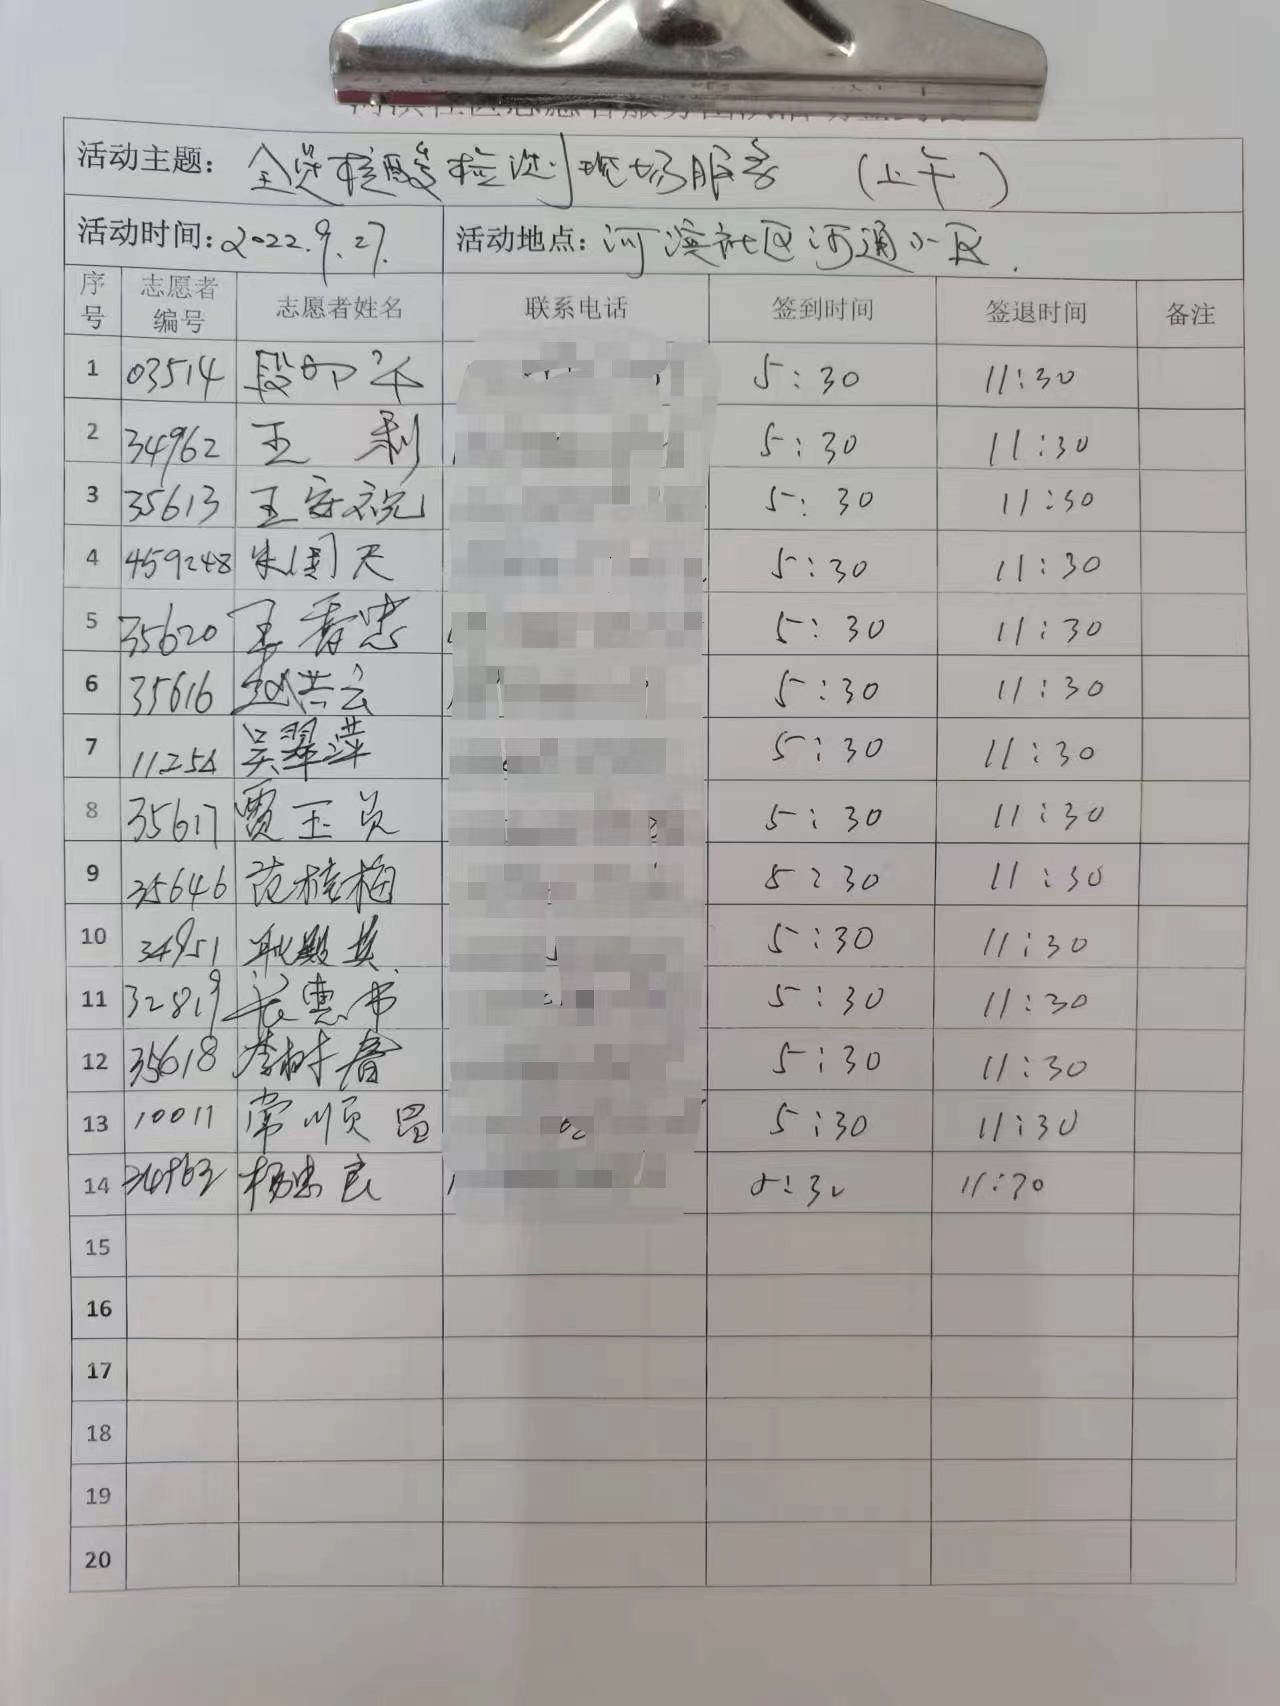 活动主题：全员核酸检测现场服务 （上午）
活动时间：2022.9.27. 活动地点：河滨社区河通小区.
序号 志愿者编号 志愿者姓名 联系电话 签到时间 签退时间 备注
1 03514 段 5:30 11:30
2 34962 王 利 5:30 11:30
3 35613 王安祝 5:30 11:30
4 459248 朱国天 5:30 11:30
5 35620 王香忠 5:30 11:30
6 35616 赵洪云 5:30 11:30
7 11254 吴翠萍 5:30 11:30
8 35617 贾玉贞 5:30 11:30
9 35646 范桂梅 5:30 11:30
10 34951 耿殿英 5:30 11:30
11 32819 张惠书 5:30 11:30
12 35618 李树春 5:30 11:30
13 10011 常顺昌 5:30 11:30
14 34963 杨忠良 5:30 11:30
15
16
17
18
19
20